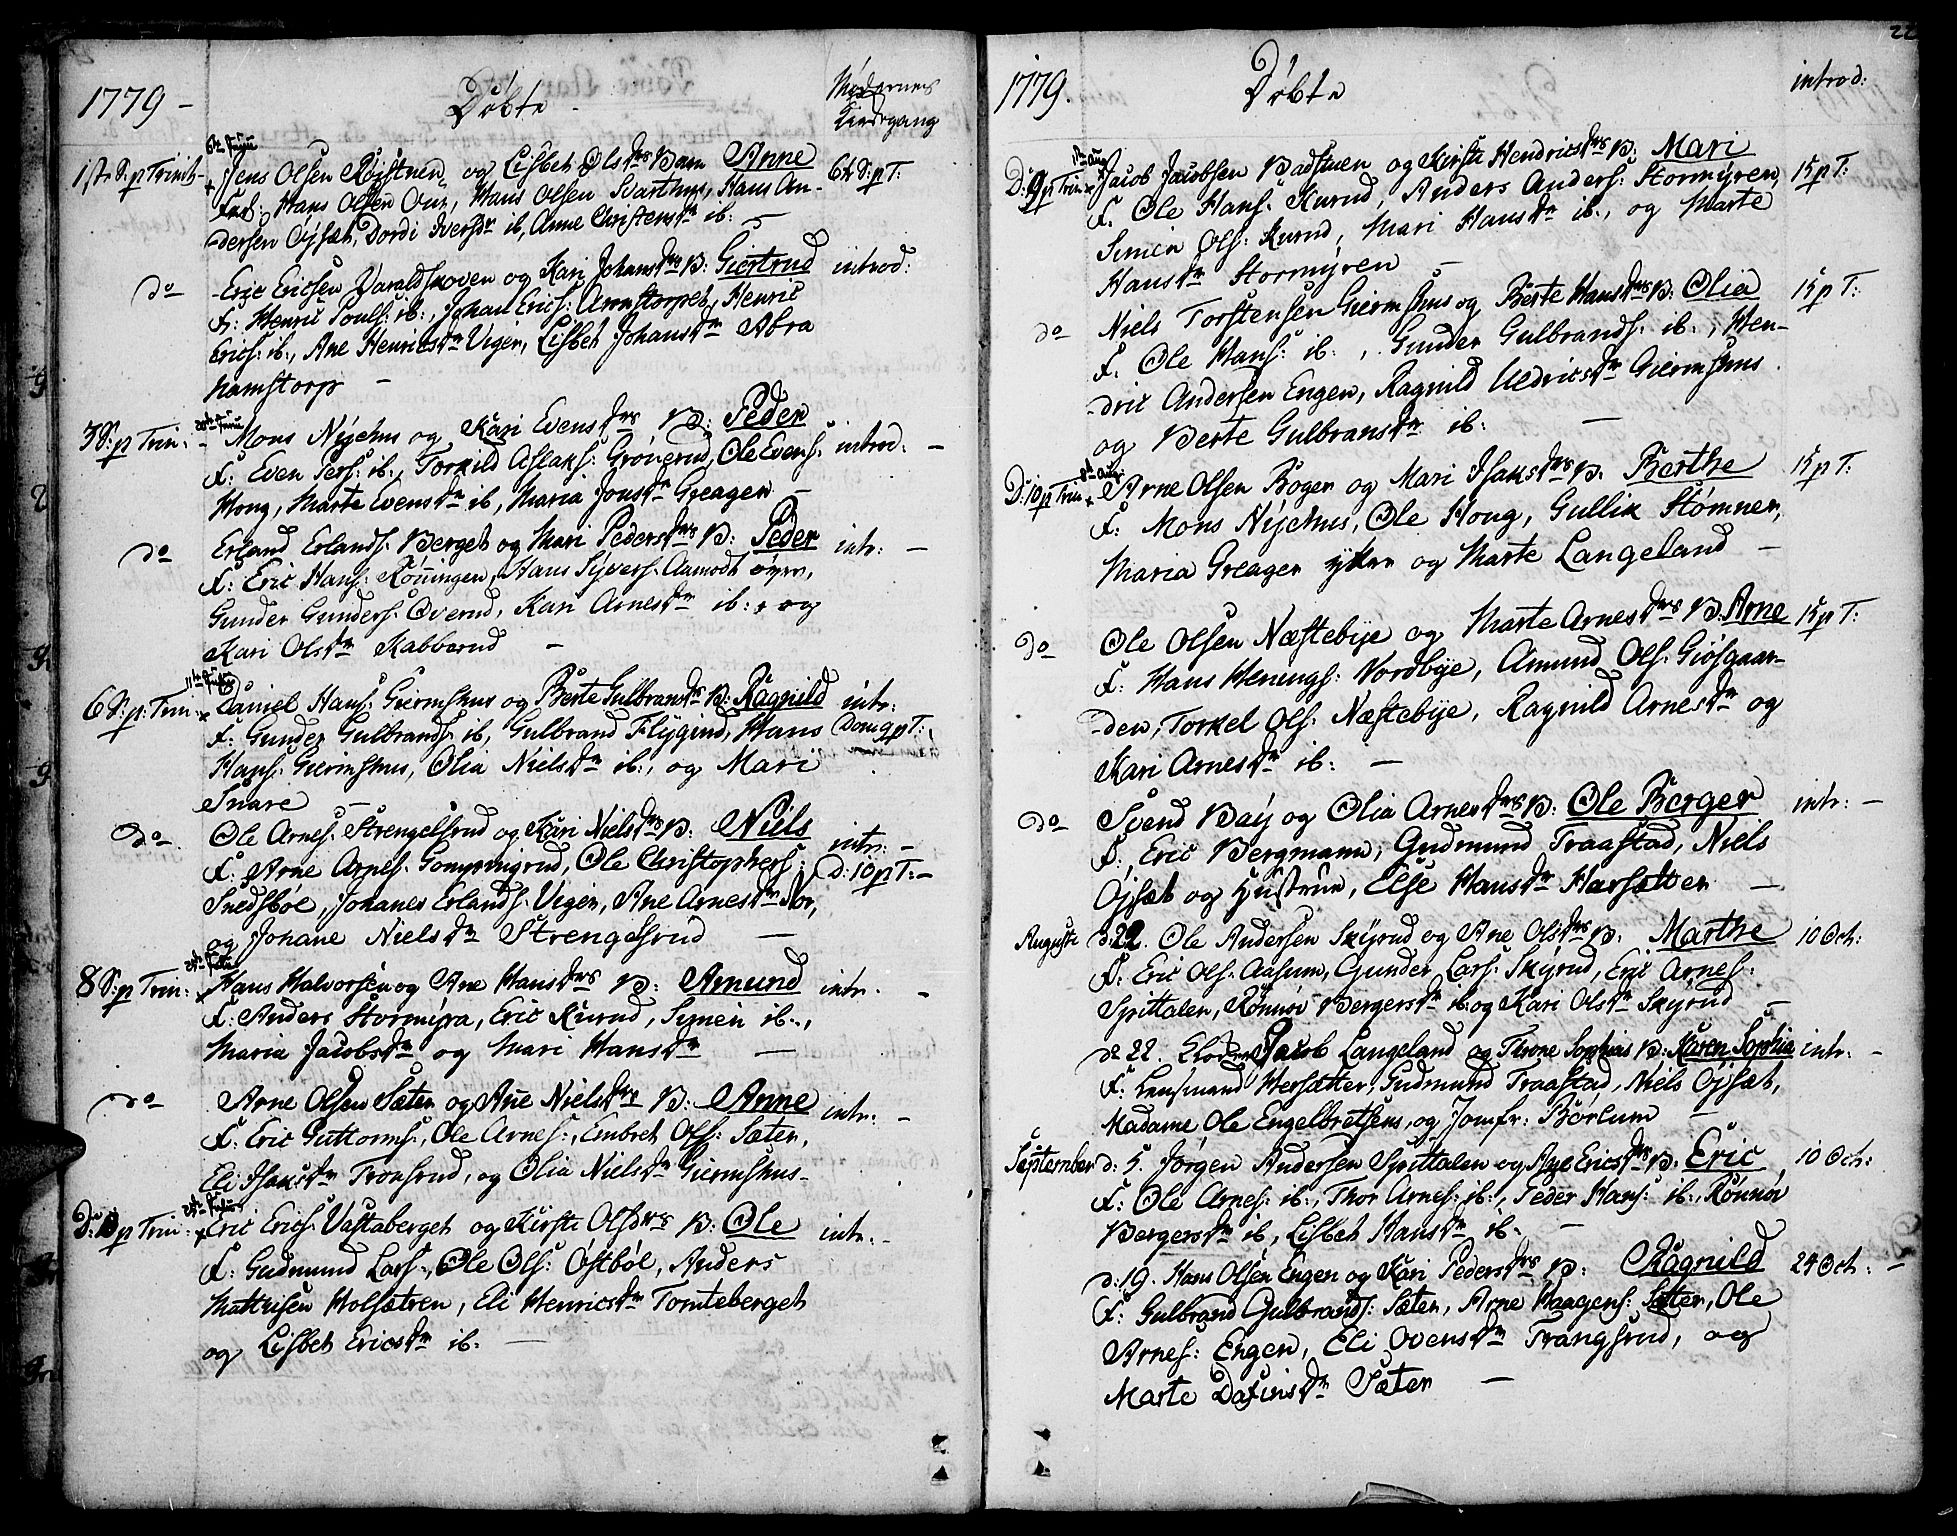 1779 –
Døbte –
Mødernes
Kirkegang
6te Junii
1ste S: p Trinit: –
Jens Olsen Røistuen og Lisbet Olsdrs Barn Anne
6te S: p T:
Fad: Hans Olsen Oun, Hans Olsen Svarthus, Hans An-
dersen Øjset, Dordi Iversdr ib, Anne Christensdr ib: –
do
Eric Ericsen Varaldskoven og Kari Johansdrs B: Giertrud
introd:
F: Henric Pouls: ib:, Johan Erics: Arnstorpet, Henric
Erics: ib., Ane Henricsdr Viger, Lisbet Johansdr Abra
hamstorp –
20de Junii
3 S: p Trin: –
Mons Nyehus og Kari Evensdrs B: Peder
F: Even Pers: ib., Torkild Aslaks: Grønerud, Ole Evens:
introd: –
Houg, Marte Evensdr ib, Maria Jonsdr Greager –
do
Erland Erlands: Berget og Mari Pedersdrs B: Peder
intr: –
F: Eric Hans: Rønningen, Hans Syvers: Aamodt øvre,
Gunder Gunders: Overud, Kari Arnesdr ib:, og
Kari Olsdr Kabberud –
11te Julii
6 S: p: Trin: ×
Daniel Hans: Giermshus og Berte Gulbransdrs B: Ragnild
intr:
F: Gunder Gulbrands: ib, Gulbrand Flygind, Hans
Dom 9 p T:
Hans: Giermshus, Olia Nielsdr ib:, og Mari
Snare –
do
Ole Arnes: Strengelsrud og Kari Nielsdrs B: Niels
intr: –
F: Arne Arnes: Gompmigrud, Ole Christophers:
D: 10 p T: –
Snedsbøl, Johanes Erlands: Viger, Ane Arnesdr Nor,
og Johane Nielsdr Strengelsrud –
25de Julii
8 S: p Trin: ×
Hans Halvorsen og Ane Hansdrs B: Amund
intr: –
F: Anders Stormyra, Eric Kurud, Simen ib:,
Maria Jacobsdr og Mari Hansdr –
do
Arne Olsen Sæter og Ane Nielsdrs B: Anne
intr: –
F: Eric Guttorms:, Ole Arnes:, Embret Ols: Sæter,
Eli Isaksdr Tronsrud, og Olia Nielsdr Giermshus –
D: p Trin: ×
Eric Erics: Vastaberget og Kirsti Olsdrs B: Ole
intr: –
F: Gudmund Lars:, Ole Ols: Østbøl, Anders
Mathisen Holsætren, Eli Henricsdr Tomteberget
og Lisbet Ericsdr ib: –
22
1779.
Døbte
introd:
1ste Aug
D: 9 p Trin ×
Jacob Jacobsen Badstuen og Kirsti Hendricsdrs B: Mari
15 p T:
F. Ole Hans: Kurud, Anders Anders: Stormyren,
Simen Ols: Kurud, Mari Hansdr ib:, og Marte
Hansdr Stormyren –
do
Niels Torstensen Giermshus og Berte Hansdrs B: Olia
15 p T:
F. Ole Hans: ib:, Gunder Gulbrands: ib:, Hen-
dric Andersen Engen, Ragnild Uldricsdr Giermshus
og Berte Gulbransdr ib: –
8de Aug:
D: 10 p Trin ×
Arne Olsen Boger og Mari Isaksdrs B: Berthe
15 p T:
F: Mons Nyehus, Ole Houg, Gullik Stømner,
Maria Greager ytre og Marte Langeland –
do
Ole Olsen Næstebye og Marte Arnesdrs B: Arne
15 p T:
F: Hans Henings: Nordbye, Amund Ols: Giøsgaar-
den, Torkel Ols: Næstebye, Ragnild Arnesdr og
Kari Arnesdr ib: –
do
Svend Baÿ og Olia Arnesdrs B: Ole Berger
intr: –
F: Eric Bergmann, Gudmund Traastad, Niels
Øjset og Hustrue, Else Hansdr Harsætter –
Augusti
d: 22.
Ole Andersen Skyrud og Ane Olsdrs B: Marthe
10 Oct:
F: Eric Ols: Aasum, Gunder Lars: Skyrud, Eric Arnes:
Spittalen, Rønnov Bergersdr ib og Kari Olsdr Skyrud –
do 22.
Jacob Langeland og Trone Sophias B: Karen Sophia
intr: –
F: Lensmand Hersætter, Gudmund Traastad, Niels Øjset,
Madame Ole Engelbretsens, og Jomfr: Børlum –
September
d: 5.
Jørgen Andersen Spittalen og Aye Ericsdrs B: Eric
10 Oct:
F: Ole Arnes: ib:, Thor Arnes: ib:, Peder Hans: ib:, Rønnov
Bergersdr ib, Lisbet Hansdr ib: –
d: 19.
Hans Olsen Engen og Kari Pedersdrs B: Ragnild
24 Oct: –
F: Gulbrand Gulbrands: Sæter, Arne Haagens: Sæter, Ole
Arnes: Engen, Eli Ovensdr Trangsrud, og
Marte Dafinsdr Sæter –